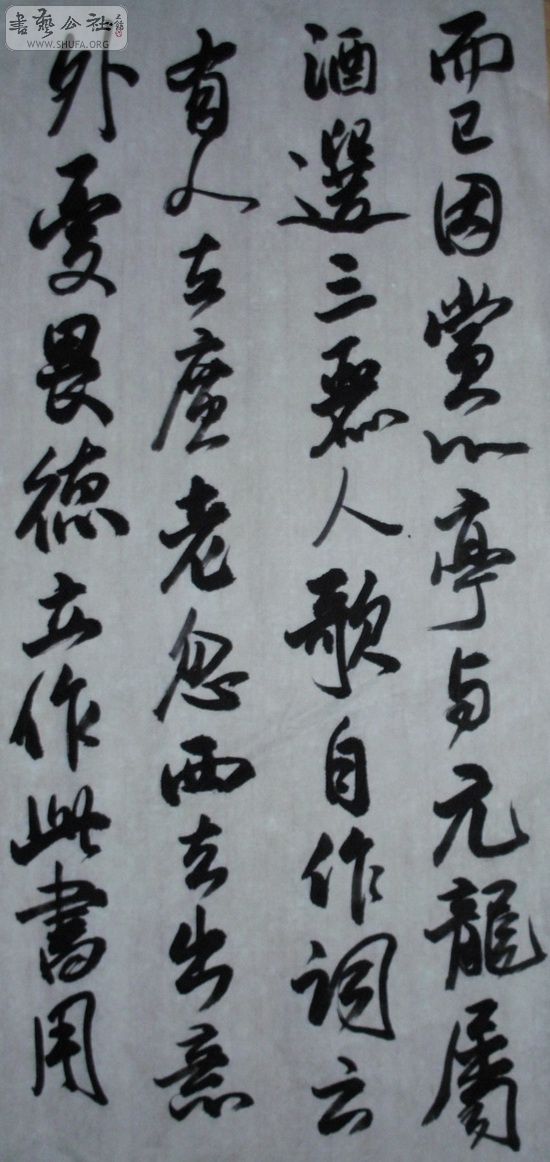 書藝公社
WWW.SHUFA.ORG
而已因賞心亭与元龍屬
酒選三人歌自作詞云
有人廣老忽西去出意
外畏德立作此書用